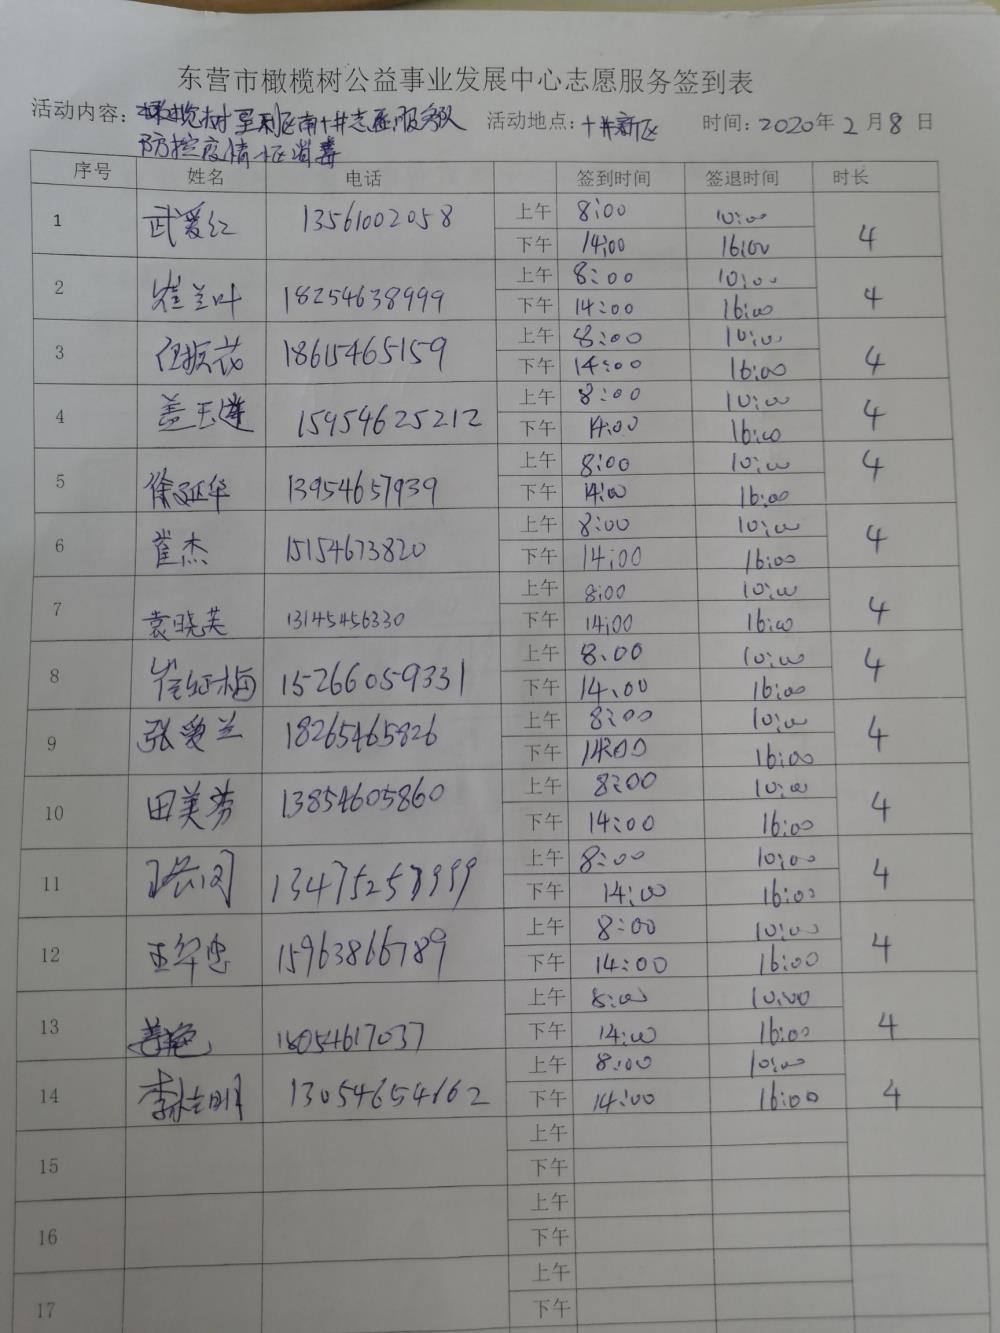 东营市橄榄树公益事业发展中心志愿服务签到表
活动内容：橄榄树垦利区南十井志愿服务队 活动地点：十井新区 时间：2020年2月8日
防控疫情小区消毒
序号 姓名 电话 签到时间 签退时间 时长
1 武爱红 13561002058 上午 8:00 10:00 4
下午 14:00 16:00
2 崔兰叶 18254638999 上午 8:00 10:00 4
下午 14:00 16:00
3 任振花 18615465159 上午 8:00 10:00 4
下午 14:00 16:00
4 盖玉莲 15954625212 上午 8:00 10:00 4
下午 14:00 16:00
5 徐延华 13954657939 上午 8:00 10:00 4
下午 14:00 16:00
6 崔杰 15154673820 上午 8:00 10:00 4
下午 14:00 16:00
7 袁晓芙 13145456330 上午 8:00 10:00 4
下午 14:00 16:00
8 崔红梅 15266059331 上午 8:00 10:00 4
下午 14:00 16:00
9 张爱兰 18265465826 上午 8:00 10:00 4
下午 14:00 16:00
10 田美芳 13854605860 上午 8:00 10:00 4
下午 14:00 16:00
11 13475257999 上午 8:00 10:00 4
下午 14:00 16:00
12 王华忠 15963866789 上午 8:00 10:00 4
下午 14:00 16:00
13 18054617037 上午 8:00 10:00 4
下午 14:00 16:00
14 13054654662 上午 8:00 10:00 4
下午 14:00 16:00
15 上午
下午
16 上午
下午
17 上午
下午